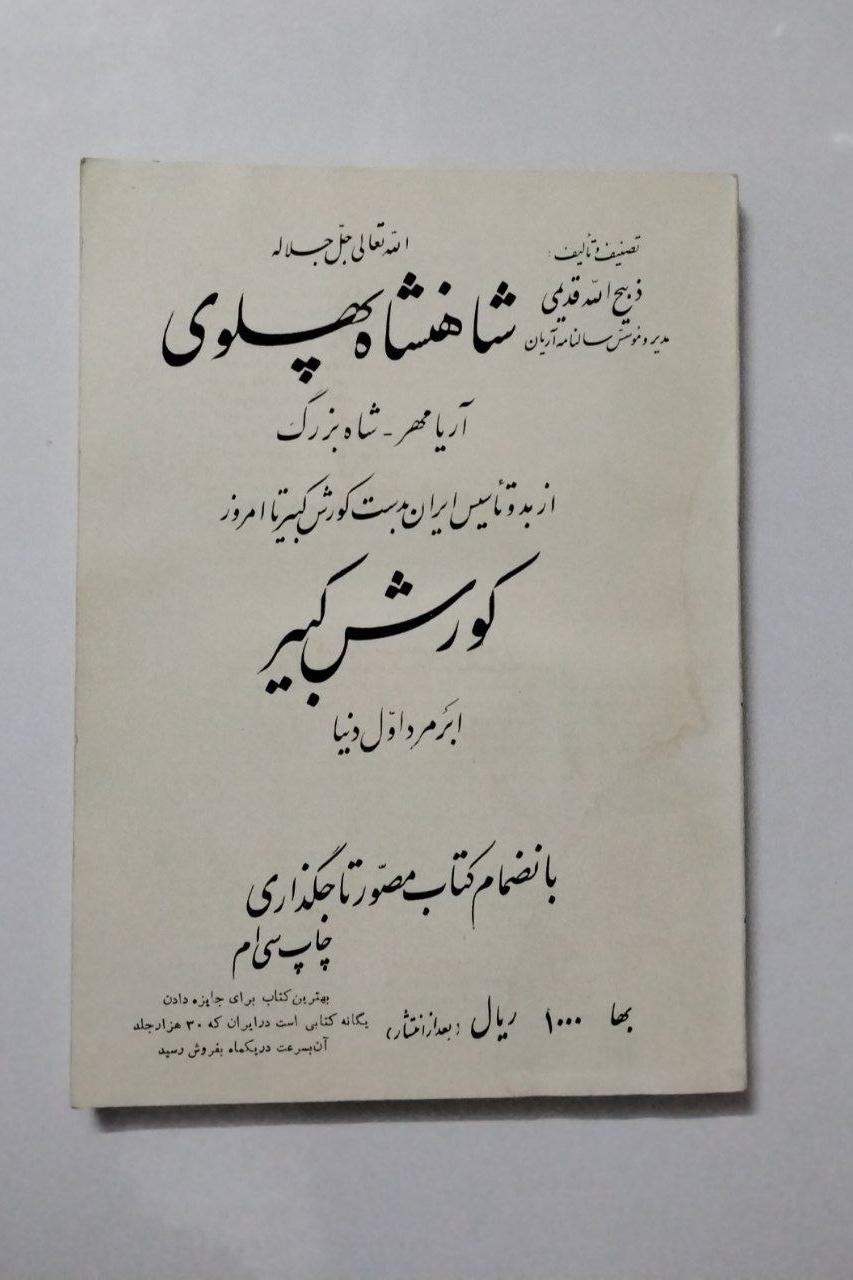 الله تعالی جلّ جلاله
تصنیف و تألیف :
ذبیح الله قدیمی
مدیر و مؤسس سالنامه آریان
شاهنشاه پهلوی
آریامهر - شاه بزرگ
از بدو تأسیس ایران بدست کورش کبیر تا امروز
کورش کبیر
ابَر مرد اوّل دنیا
بانضمام کتاب مصّور تاجگذاری
چاپ سی ام
بها ۱۰۰۰ ریال (بعد از انتشار)
بهترین کتاب برای جایزه دادن
یگانه کتابی است در ایران که ۳۰ هزار جلد
آن بسرعت در یکماه بفروش رسید